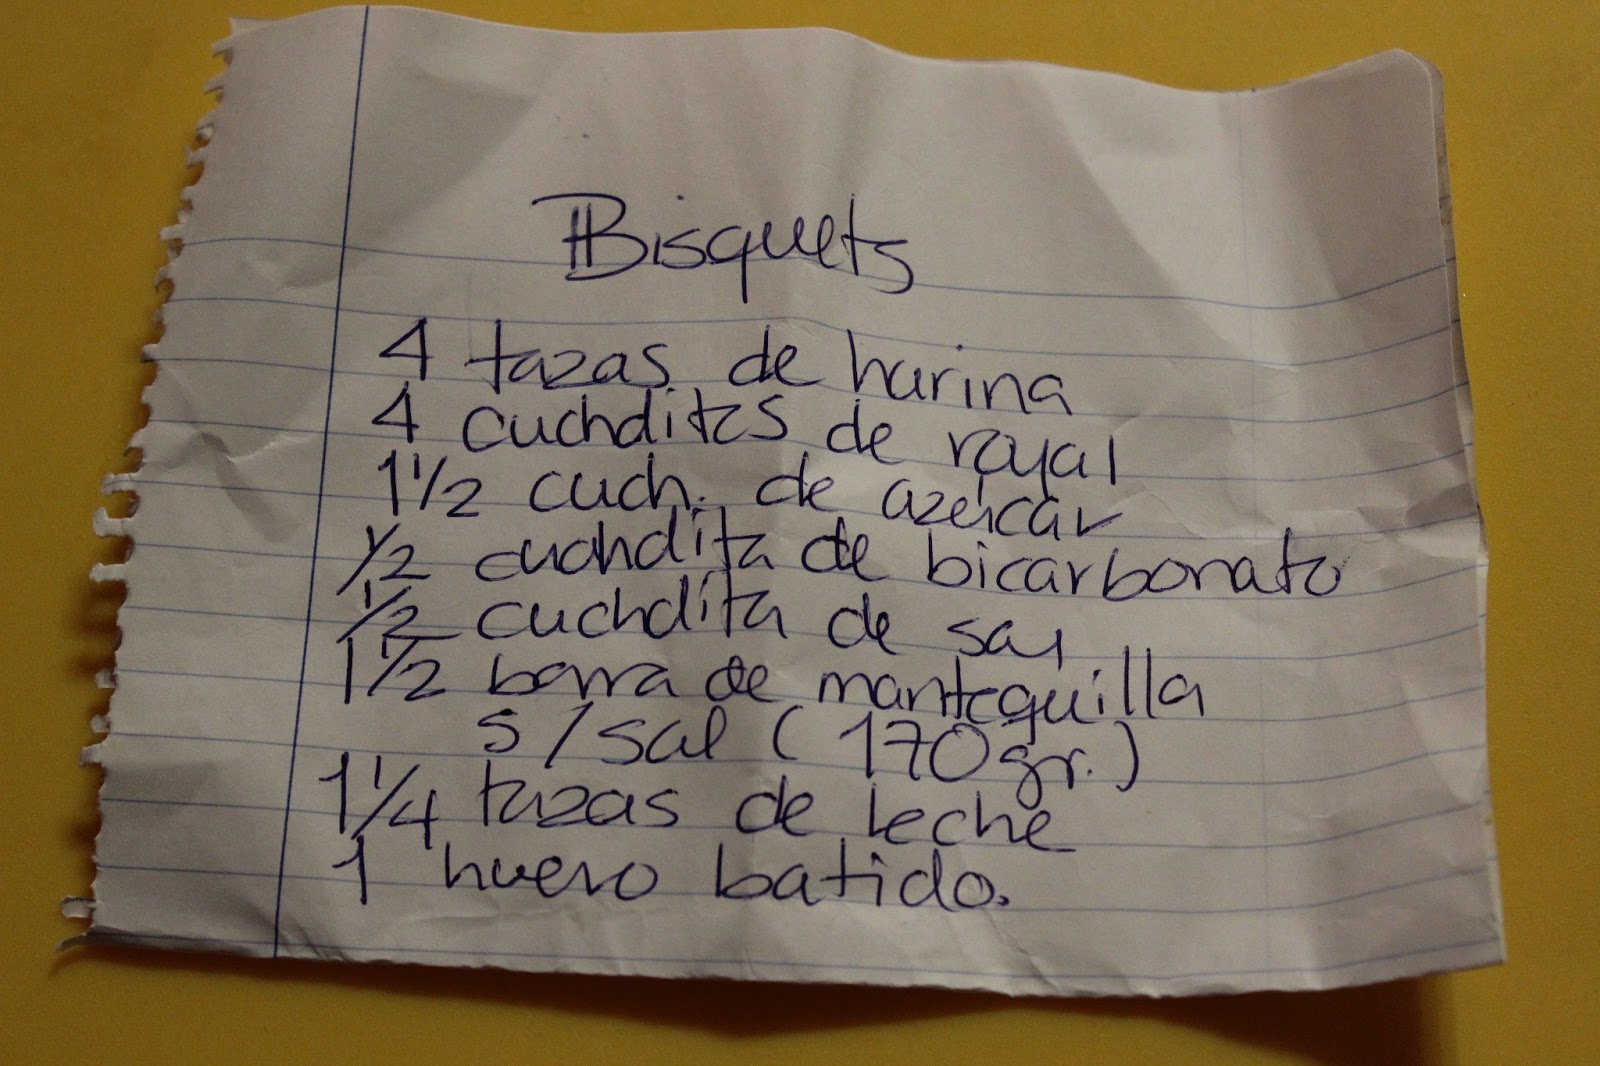 Bisquets
4 tazas de harina
4 cuchditas de royal
1 1/2 cuch. de azúcar
1/2 cuchdita de bicarbonato
1/2 cuchdita de sal
1 1/2 barra de mantequilla
s/sal (170gr.)
1 1/4 tazas de leche
1 huevo batido.